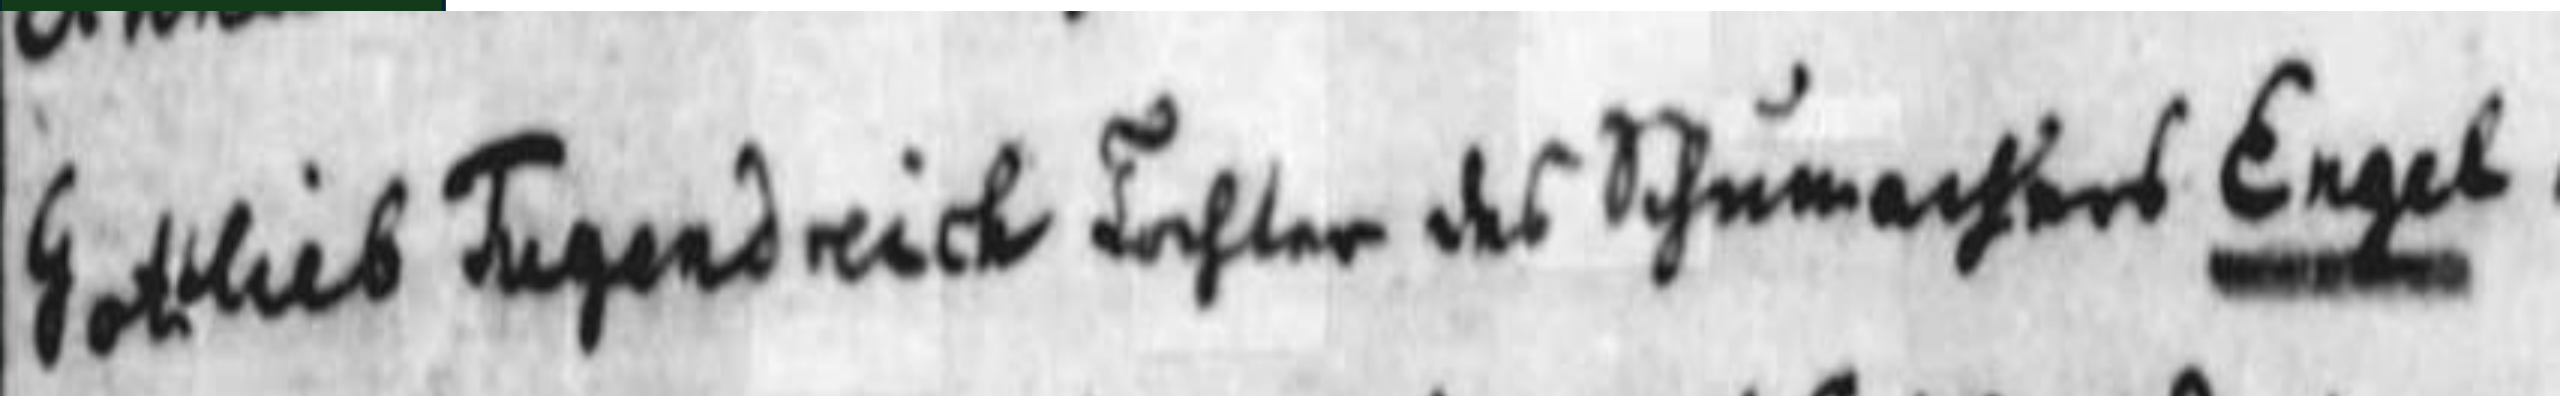 Gottlieb Tugendreich Tochter des Schumachers Engel